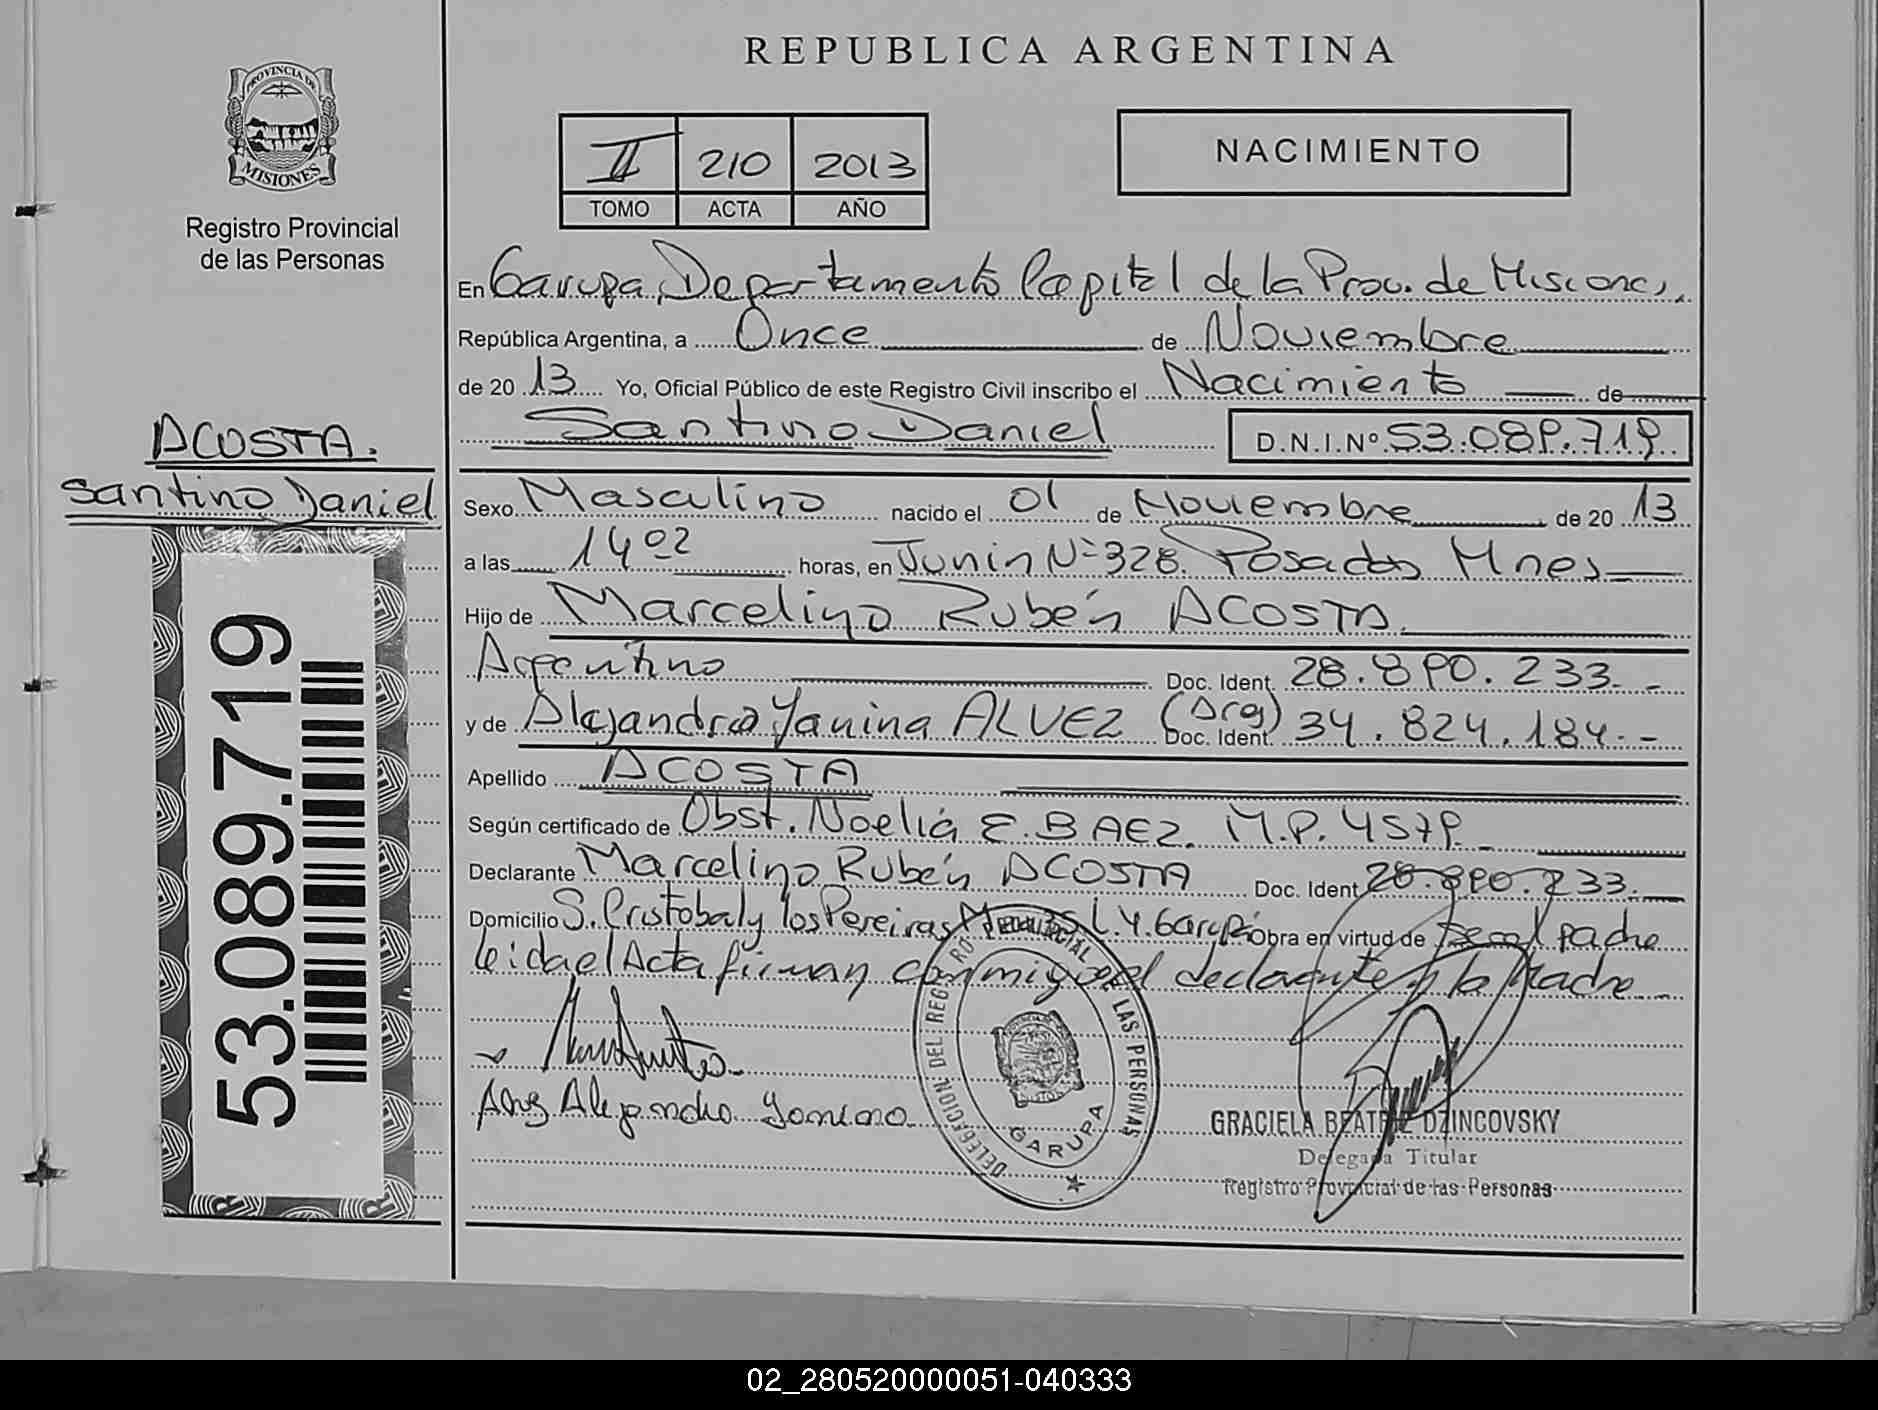 REPUBLICA ARGENTINA
PROVINCIA DE
MISIONES
Registro Provincial
de las Personas
II 210 2013
TOMO ACTA AÑO
NACIMIENTO
En Garupa, Departamento Capital de la Prov. de Misiones,
República Argentina, a Once de Noviembre
de 20 13 Yo, Oficial Público de este Registro Civil inscribo el Nacimiento de
Santino Daniel D.N.I.Nº 53.089.719
ACOSTA.
Santino Daniel
53.089.719
Sexo Masculino nacido el 01 de Noviembre de 20 13
a las 14 02 horas, en Junin Nº 328. Posadas Mnes
Hijo de Marcelino Rubén ACOSTA.
Argentino Doc. Ident. 28.890.233.-
y de Alejandra Yanina ALVEZ (Arg) Doc. Ident. 34.824.184.-
Apellido ACOSTA
Según certificado de Obst. Noelia E. BAEZ. M.P. 4579.
Declarante Marcelino Rubén ACOSTA Doc. Ident. 28.890.233.
Domicilio S. Cristobal y los Pereiras Obra en virtud de padre
leida el Acta firman conmigo el declarante y la Madre
Alejandra Yanina
DELEGACION DEL REGISTRO PROVINCIAL DE LAS PERSONAS
GARUPA
GRACIELA BEATRIZ DZINCOVSKY
Delegada Titular
Registro Provincial de las Personas
02_280520000051-040333